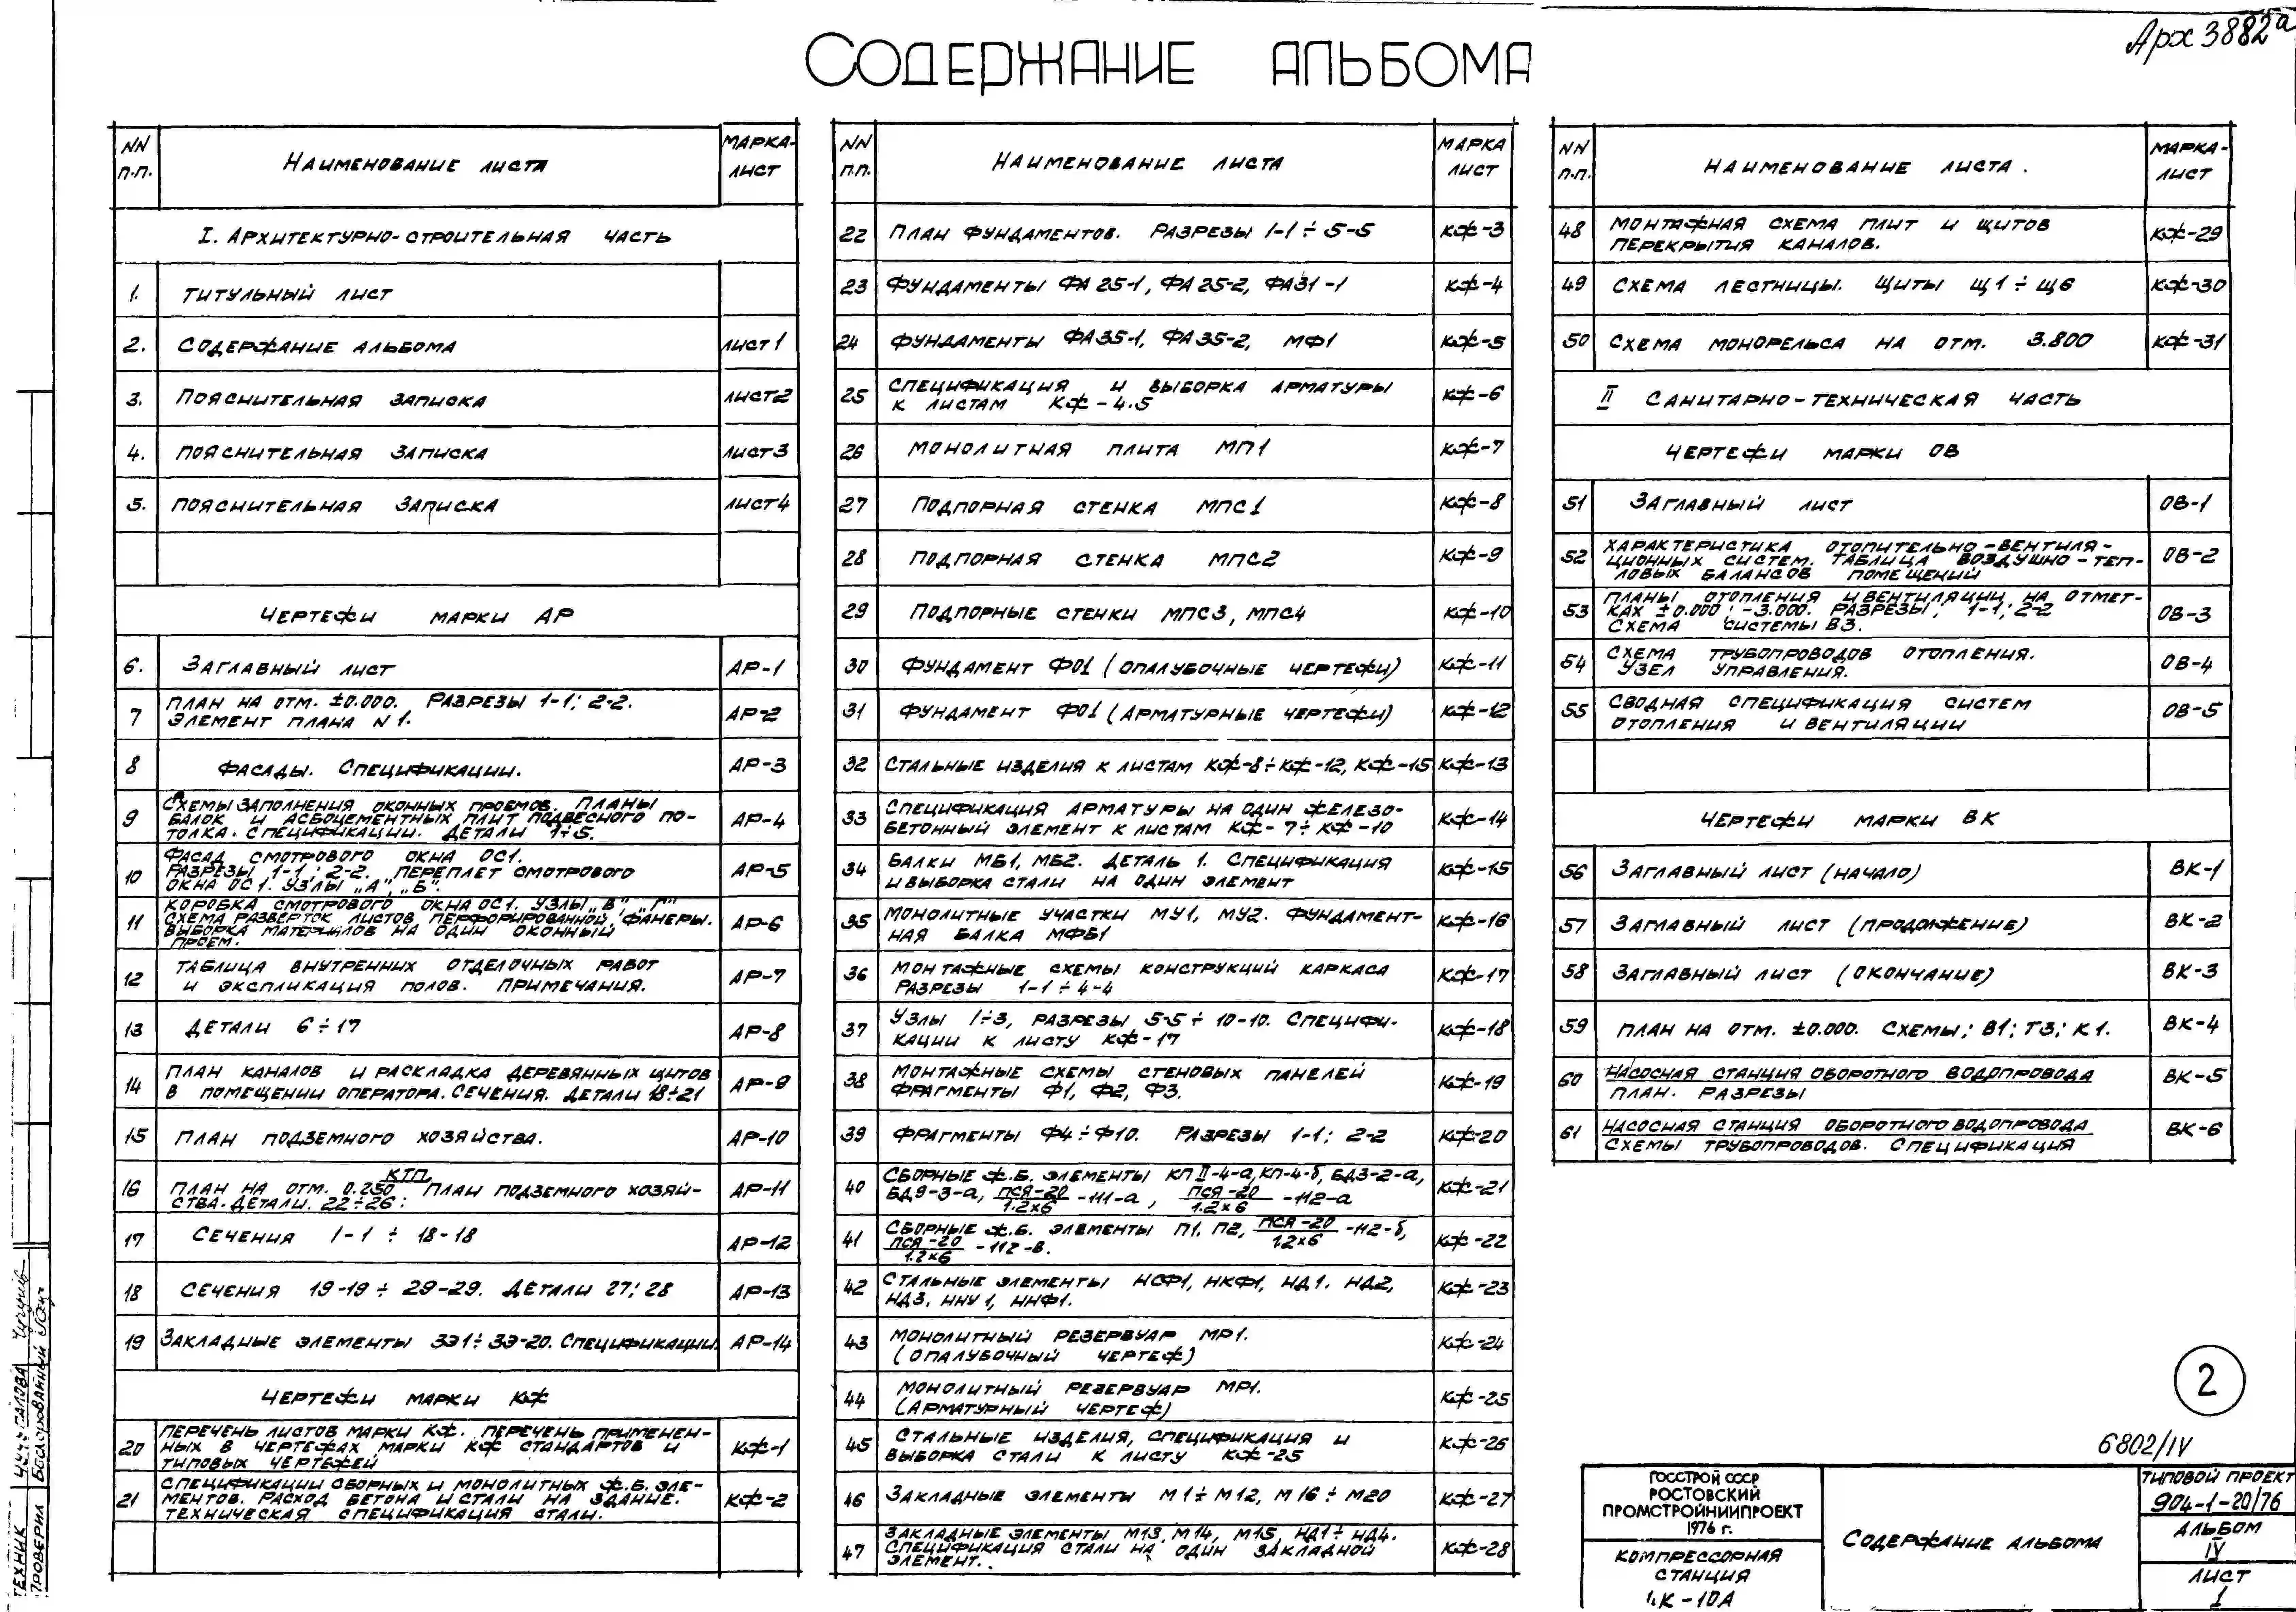 Арх 3882а
СОДЕРЖАНИЕ АЛЬБОМА
NN п.п. НАИМЕНОВАНИЕ ЛИСТА МАРКА-ЛИСТ
I. АРХИТЕКТУРНО-СТРОИТЕЛЬНАЯ ЧАСТЬ
1. ТИТУЛЬНЫЙ ЛИСТ
2. СОДЕРЖАНИЕ АЛЬБОМА ЛИСТ 1
3. ПОЯСНИТЕЛЬНАЯ ЗАПИСКА ЛИСТ 2
4. ПОЯСНИТЕЛЬНАЯ ЗАПИСКА ЛИСТ 3
5. ПОЯСНИТЕЛЬНАЯ ЗАПИСКА ЛИСТ 4
ЧЕРТЕЖИ МАРКИ АР
6. ЗАГЛАВНЫЙ ЛИСТ АР-1
7 ПЛАН НА ОТМ. ±0.000. РАЗРЕЗЫ 1-1; 2-2.
ЭЛЕМЕНТ ПЛАНА N 1. АР-2
8 ФАСАДЫ. СПЕЦИФИКАЦИИ. АР-3
9 СХЕМЫ ЗАПОЛНЕНИЯ ОКОННЫХ ПРОЕМОВ. ПЛАНЫ
БАЛОК И АСБОЦЕМЕНТНЫХ ПЛИТ ПОДВЕСНОГО ПО-
ТОЛКА. СПЕЦИФИКАЦИИ. ДЕТАЛИ 1÷5. АР-4
10 ФАСАД СМОТРОВОГО ОКНА ОС1.
РАЗРЕЗЫ 1-1; 2-2. ПЕРЕПЛЕТ СМОТРОВОГО
ОКНА ОС1. УЗЛЫ „А", „Б". АР-5
11 КОРОБКА СМОТРОВОГО ОКНА ОС1. УЗЛЫ „В" „Г"
СХЕМА РАЗВЕРТОК ЛИСТОВ ПЕРФОРИРОВАННОЙ ФАНЕРЫ.
ВЫБОРКА МАТЕРИАЛОВ НА ОДИН ОКОННЫЙ
ПРОЕМ. АР-6
12 ТАБЛИЦА ВНУТРЕННИХ ОТДЕЛОЧНЫХ РАБОТ
И ЭКСПЛИКАЦИЯ ПОЛОВ. ПРИМЕЧАНИЯ. АР-7
13 ДЕТАЛИ 6÷17 АР-8
14 ПЛАН КАНАЛОВ И РАСКЛАДКА ДЕРЕВЯННЫХ ЩИТОВ
В ПОМЕЩЕНИИ ОПЕРАТОРА. СЕЧЕНИЯ. ДЕТАЛИ 18÷21 АР-9
15 ПЛАН ПОДЗЕМНОГО ХОЗЯЙСТВА. АР-10
16 КТП.
ПЛАН НА ОТМ. 0.250 ПЛАН ПОДЗЕМНОГО ХОЗЯЙ-
СТВА. ДЕТАЛИ. 22÷26. АР-11
17 СЕЧЕНИЯ 1-1 ÷ 18-18 АР-12
18 СЕЧЕНИЯ 19-19 ÷ 29-29. ДЕТАЛИ 27; 28 АР-13
19 ЗАКЛАДНЫЕ ЭЛЕМЕНТЫ ЗЭ1÷ЗЭ-20. СПЕЦИФИКАЦИИ. АР-14
ЧЕРТЕЖИ МАРКИ КЖ
20 ПЕРЕЧЕНЬ ЛИСТОВ МАРКИ КЖ. ПЕРЕЧЕНЬ ПРИМЕНЕН-
НЫХ В ЧЕРТЕЖАХ МАРКИ КЖ СТАНДАРТОВ И
ТИПОВЫХ ЧЕРТЕЖЕЙ КЖ-1
21 СПЕЦИФИКАЦИИ СБОРНЫХ И МОНОЛИТНЫХ Ж.Б. ЭЛЕ-
МЕНТОВ. РАСХОД БЕТОНА И СТАЛИ НА ЗДАНИЕ.
ТЕХНИЧЕСКАЯ СПЕЦИФИКАЦИЯ СТАЛИ. КЖ-2
NN п.п. НАИМЕНОВАНИЕ ЛИСТА МАРКА ЛИСТ
22 ПЛАН ФУНДАМЕНТОВ. РАЗРЕЗЫ 1-1÷5-5 КЖ-3
23 ФУНДАМЕНТЫ ФА25-1, ФА25-2, ФА31-1 КЖ-4
24 ФУНДАМЕНТЫ ФА35-1, ФА35-2, МФ1 КЖ-5
25 СПЕЦИФИКАЦИЯ И ВЫБОРКА АРМАТУРЫ
К ЛИСТАМ КЖ-4.5 КЖ-6
26 МОНОЛИТНАЯ ПЛИТА МП1 КЖ-7
27 ПОДПОРНАЯ СТЕНКА МПС1 КЖ-8
28 ПОДПОРНАЯ СТЕНКА МПС2 КЖ-9
29 ПОДПОРНЫЕ СТЕНКИ МПС3, МПС4 КЖ-10
30 ФУНДАМЕНТ ФО1 (ОПАЛУБОЧНЫЕ ЧЕРТЕЖИ) КЖ-11
31 ФУНДАМЕНТ ФО1 (АРМАТУРНЫЕ ЧЕРТЕЖИ) КЖ-12
32 СТАЛЬНЫЕ ИЗДЕЛИЯ К ЛИСТАМ КЖ-8÷КЖ-12, КЖ-15 КЖ-13
33 СПЕЦИФИКАЦИЯ АРМАТУРЫ НА ОДИН ЖЕЛЕЗО-
БЕТОННЫЙ ЭЛЕМЕНТ К ЛИСТАМ КЖ-7÷КЖ-10 КЖ-14
34 БАЛКИ МБ1, МБ2. ДЕТАЛЬ 1. СПЕЦИФИКАЦИЯ
И ВЫБОРКА СТАЛИ НА ОДИН ЭЛЕМЕНТ КЖ-15
35 МОНОЛИТНЫЕ УЧАСТКИ МУ1, МУ2. ФУНДАМЕНТ-
НАЯ БАЛКА МФБ1 КЖ-16
36 МОНТАЖНЫЕ СХЕМЫ КОНСТРУКЦИЙ КАРКАСА
РАЗРЕЗЫ 1-1÷4-4 КЖ-17
37 УЗЛЫ 1÷3, РАЗРЕЗЫ 5-5÷10-10. СПЕЦИФИ-
КАЦИИ К ЛИСТУ КЖ-17 КЖ-18
38 МОНТАЖНЫЕ СХЕМЫ СТЕНОВЫХ ПАНЕЛЕЙ
ФРАГМЕНТЫ Ф1, Ф2, Ф3. КЖ-19
39 ФРАГМЕНТЫ Ф4÷Ф10. РАЗРЕЗЫ 1-1; 2-2 КЖ-20
40 СБОРНЫЕ Ж.Б. ЭЛЕМЕНТЫ КПII-4-а, КП-4-б, БД3-2-а,
БД9-3-а, ПСЯ-20/1.2х6 -111-а, ПСЯ-20/1.2х6 -112-а КЖ-21
41 СБОРНЫЕ Ж.Б. ЭЛЕМЕНТЫ П1, П2, ПСЯ-20/1.2х6 -112-б,
ПСЯ-20/1.2х6 -112-в. КЖ-22
42 СТАЛЬНЫЕ ЭЛЕМЕНТЫ НСФ1, НКФ1, НД1. НД2,
НД3, ННУ1, ННФ1. КЖ-23
43 МОНОЛИТНЫЙ РЕЗЕРВУАР МР1.
(ОПАЛУБОЧНЫЙ ЧЕРТЕЖ) КЖ-24
44 МОНОЛИТНЫЙ РЕЗЕРВУАР МР1.
(АРМАТУРНЫЙ ЧЕРТЕЖ) КЖ-25
45 СТАЛЬНЫЕ ИЗДЕЛИЯ, СПЕЦИФИКАЦИЯ И
ВЫБОРКА СТАЛИ К ЛИСТУ КЖ-25 КЖ-26
46 ЗАКЛАДНЫЕ ЭЛЕМЕНТЫ М1÷М12, М16÷М20 КЖ-27
47 ЗАКЛАДНЫЕ ЭЛЕМЕНТЫ М13, М14, М15, НД1÷НД4.
СПЕЦИФИКАЦИЯ СТАЛИ НА ОДИН ЗАКЛАДНОЙ
ЭЛЕМЕНТ. КЖ-28
NN п.п. НАИМЕНОВАНИЕ ЛИСТА. МАРКА-ЛИСТ
48 МОНТАЖНАЯ СХЕМА ПЛИТ И ЩИТОВ
ПЕРЕКРЫТИЯ КАНАЛОВ. КЖ-29
49 СХЕМА ЛЕСТНИЦЫ. ЩИТЫ Щ1÷Щ6 КЖ-30
50 СХЕМА МОНОРЕЛЬСА НА ОТМ. 3.800 КЖ-31
II САНИТАРНО-ТЕХНИЧЕСКАЯ ЧАСТЬ
ЧЕРТЕЖИ МАРКИ ОВ
51 ЗАГЛАВНЫЙ ЛИСТ ОВ-1
52 ХАРАКТЕРИСТИКА ОТОПИТЕЛЬНО-ВЕНТИЛЯ-
ЦИОННЫХ СИСТЕМ. ТАБЛИЦА ВОЗДУШНО-ТЕП-
ЛОВЫХ БАЛАНСОВ ПОМЕЩЕНИЙ ОВ-2
53 ПЛАНЫ ОТОПЛЕНИЯ И ВЕНТИЛЯЦИИ НА ОТМЕТ-
КАХ ±0.000; -3.000. РАЗРЕЗЫ; 1-1; 2-2
СХЕМА СИСТЕМЫ В3. ОВ-3
54 СХЕМА ТРУБОПРОВОДОВ ОТОПЛЕНИЯ.
УЗЕЛ УПРАВЛЕНИЯ. ОВ-4
55 СВОДНАЯ СПЕЦИФИКАЦИЯ СИСТЕМ
ОТОПЛЕНИЯ И ВЕНТИЛЯЦИИ ОВ-5
ЧЕРТЕЖИ МАРКИ ВК
56 ЗАГЛАВНЫЙ ЛИСТ (НАЧАЛО) ВК-1
57 ЗАГЛАВНЫЙ ЛИСТ (ПРОДОЛЖЕНИЕ) ВК-2
58 ЗАГЛАВНЫЙ ЛИСТ (ОКОНЧАНИЕ) ВК-3
59 ПЛАН НА ОТМ. ±0.000. СХЕМЫ; В1; Т3; К1. ВК-4
60 НАСОСНАЯ СТАНЦИЯ ОБОРОТНОГО ВОДОПРОВОДА
ПЛАН. РАЗРЕЗЫ ВК-5
61 НАСОСНАЯ СТАНЦИЯ ОБОРОТНОГО ВОДОПРОВОДА
СХЕМЫ ТРУБОПРОВОДОВ. СПЕЦИФИКАЦИЯ ВК-6
2
6802/IV
ГОССТРОЙ СССР
РОСТОВСКИЙ
ПРОМСТРОЙНИИПРОЕКТ
1976 г.
КОМПРЕССОРНАЯ
СТАНЦИЯ
4К-10А
СОДЕРЖАНИЕ АЛЬБОМА
ТИПОВОЙ ПРОЕКТ
904-1-20/76
АЛЬБОМ
IV
ЛИСТ
1
ТЕХНИК
ПРОВЕРИЛ